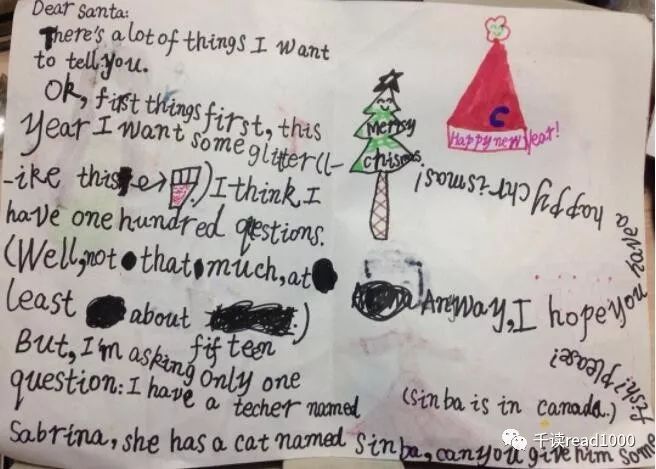 Dear Santa:
There's a lot of things I want
to tell you.
Ok, first things first, this
year I want some glitter (l-
-ike this → .) I think I
have one hundred qestions.
(Well, not that much, at
least about
fifteen .)
But, I'm asking only one
question: I have a techer named
Sabrina, she has a cat named Sinba, can you give him some
fish! please!
(sinba is in canada.)
Anyway, I hope you
have a
happy chrismas!
Merrsy
chismas.
C
Happy new year!
千读read1000